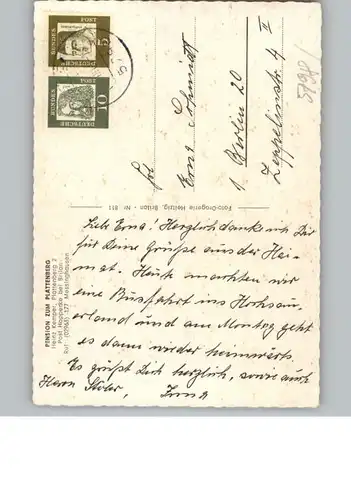 DEUTSCHE
BUNDESPOST
5
DEUTSCHE
BUNDESPOST
10
Erna Schmidt
1 Berlin 20
Zeppelinstr. 4 II
Foto-Drogerie Heitzig, Brilon - Nr. 811
PENSION ZUM PLATTENBERG
Heinz Kemper, Plattenberg 2
Post Hoppecke bei Brilon
Ruf: (02963) 377 Messinghausen
Lieb Erna! Herzlich danke ich Dir
für Deine Grüße aus der Hei-
mat. Heute machten wir
eine Busfahrt ins Hochsau-
erland und am Montag geht
es dann wieder heimwärts.
Es grüßt Dich herzlich, sowie auch
Herrn Irma